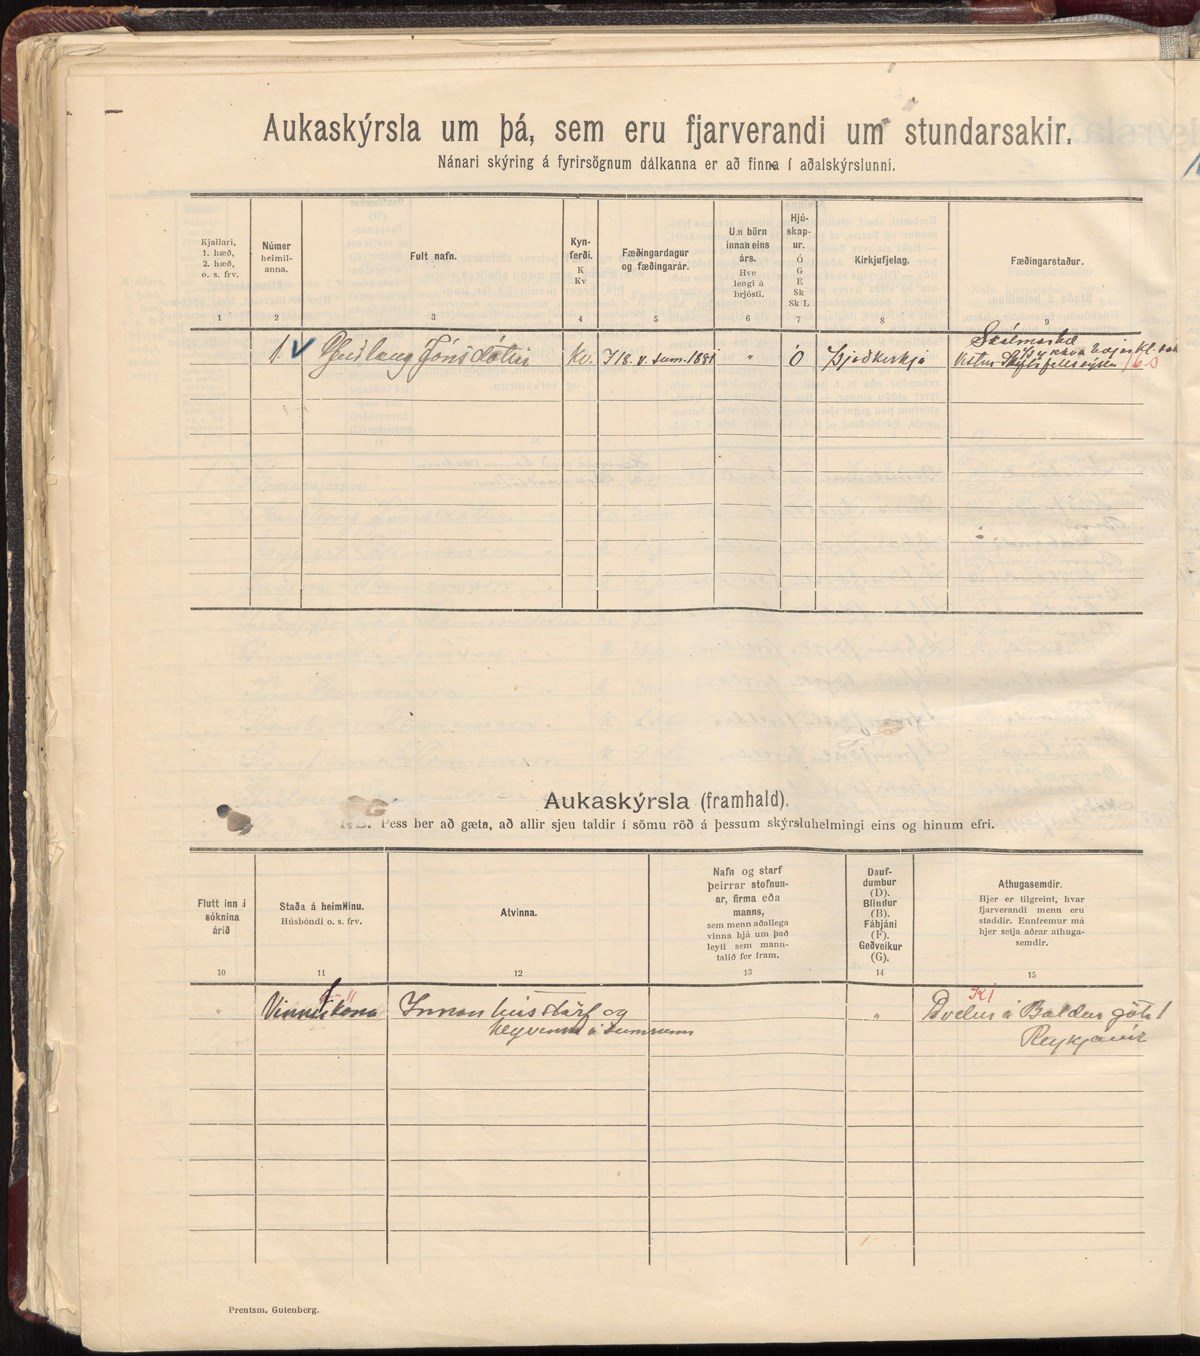 Aukaskýrsla um þá, sem eru fjarverandi um stundarsakir.
Nánari skýring á fyrirsögnum dálkanna er að finna í aðalskýrslunni.
Kjallari,
1. hæð,
2. hæð,
o. s. frv.
1
Númer
heimil-
anna.
2
Fult nafn.
3
Kyn-
ferði.
K
Kv
4
Fæðingardagur
og fæðingarár.
5
Um börn
innan eins
árs.
Hve
lengi á
brjósti.
6
Hjú-
skap-
ur.
Ó
G
E
Sk
Sk L
7
Kirkjufjelag.
8
Fæðingarstaður.
9
1. V Guðlaug Jónsdóttir Kv. 1881 „ Ó Þjóðkirkja
Aukaskýrsla (framhald).
NB. Þess ber að gæta, að allir sjeu taldir í sömu röð á þessum skýrsluhelmingi eins og hinum efri.
Flutt inn í
sóknina
árið
10
Staða á heimilinu.
Húsbóndi o. s. frv.
11
Atvinna.
12
Nafn og starf
þeirrar stofnun-
ar, firma eða
manns,
sem menn aðallega
vinna hjá um það
leyti sem mann-
talið fer fram.
13
Dauf-
dumbur
(D).
Blindur
(B).
Fábjáni
(F).
Geðveikur
(G).
14
Athugasemdir.
Hjer er tilgreint, hvar
fjarverandi menn eru
staddir. Ennfremur má
hjer setja aðrar athuga-
semdir.
15
Vinnukona Innanhússtörf og „ Dvelur á Baldursgötu 1
heyvinna á sumrum Reykjavík
Prentsm. Gutenberg.